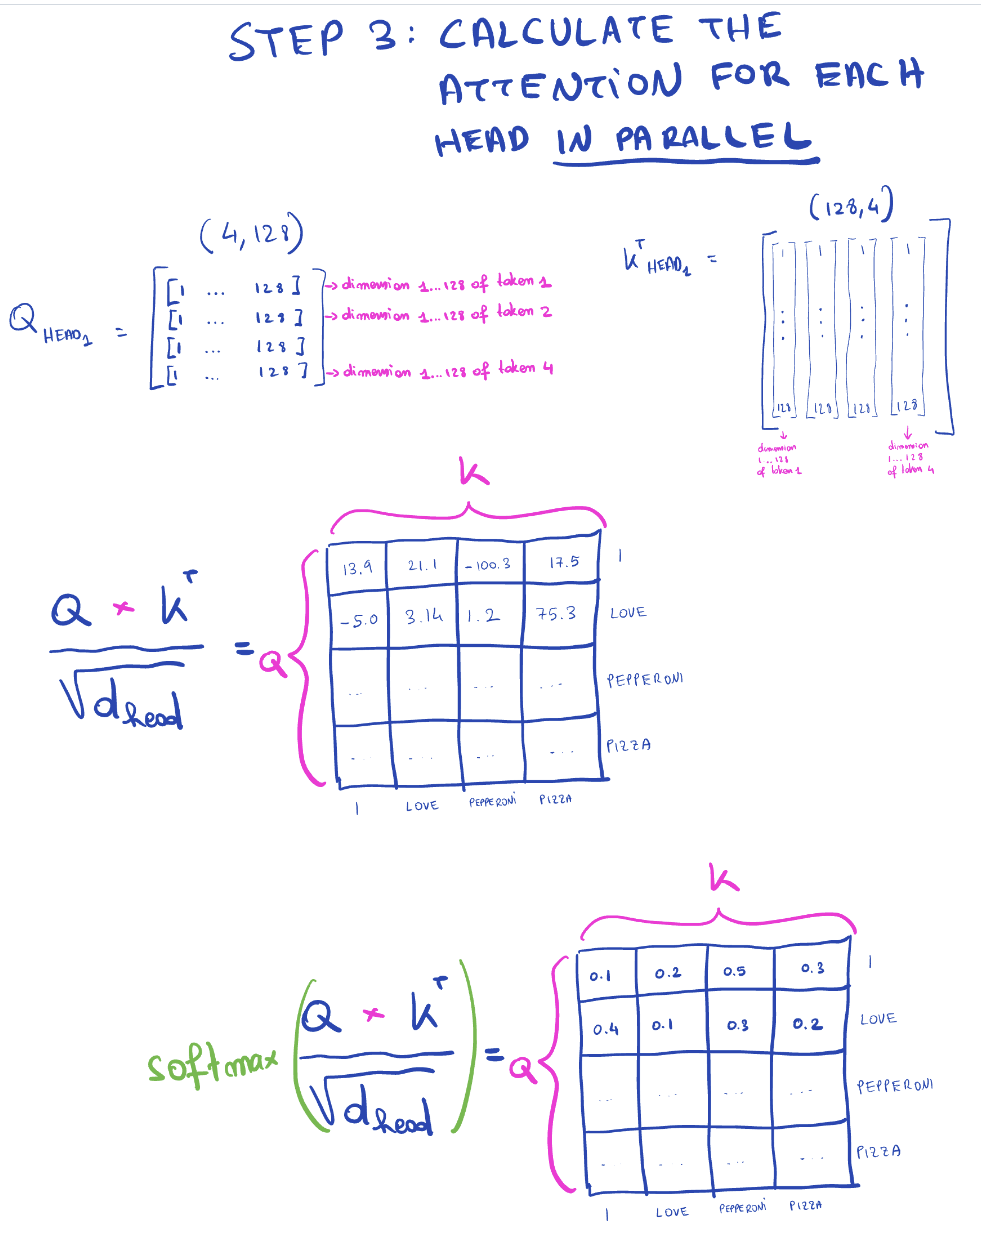 STEP 3: CALCULATE THE
ATTENTION FOR EACH
HEAD IN PARALLEL
(4,128)
Q HEAD1 =
[1 ... 128] → dimension 1...128 of token 1
[1 ... 128] → dimension 1...128 of token 2
[1 ... 128]
[1 ... 128] → dimension 1...128 of token 4
(128,4)
K^T HEAD1 =
1 1 1 1
⋮ ⋮ ⋮ ⋮
128 128 128 128
↓ ↓
dimension dimension
1...128 1...128
of token 1 of token 4
K
Q * K^T
√d head
= Q
13.9 21.1 -100.3 17.5 I
-5.0 3.14 1.2 75.3 LOVE
... ... ... ... PEPPERONI
... ... ... ... PIZZA
I LOVE PEPPERONI PIZZA
K
softmax ( Q * K^T
√d head
) = Q
0.1 0.2 0.5 0.3 I
0.4 0.1 0.3 0.2 LOVE
... ... ... ... PEPPERONI
... ... ... ... PIZZA
I LOVE PEPPERONI PIZZA